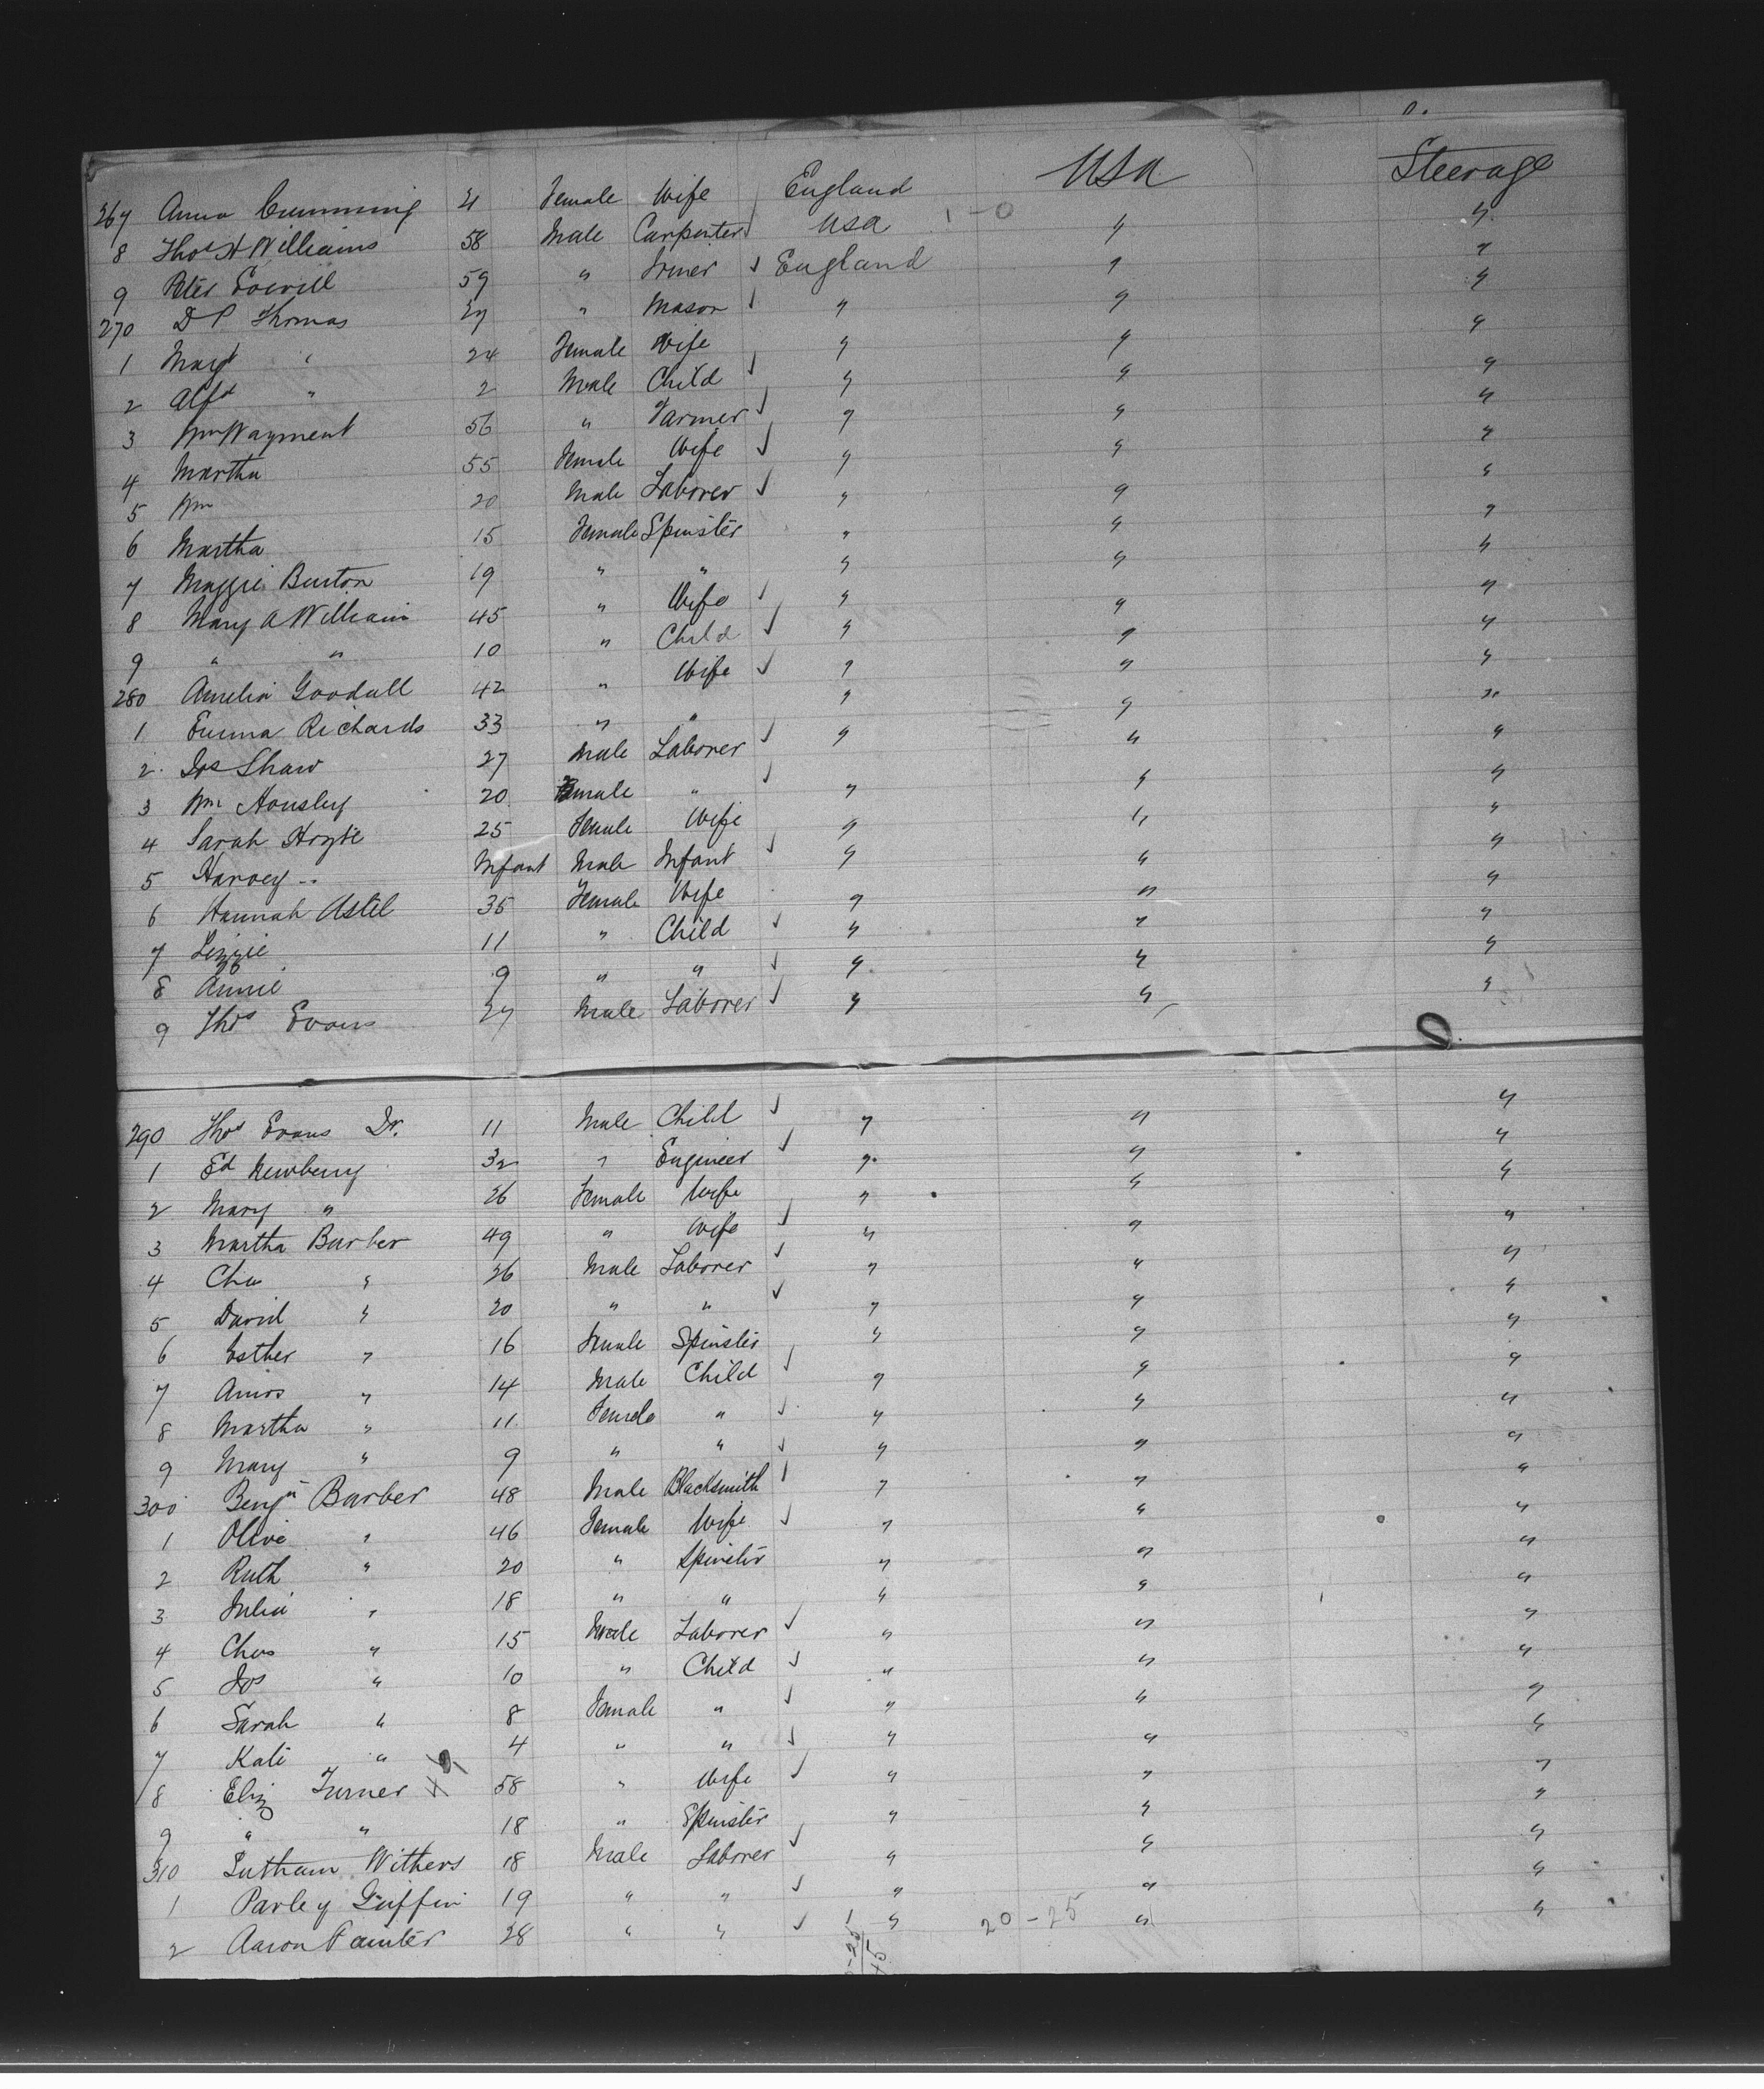 267 Anna Cumming 21 Female Wife England USA Steerage
8 Thos H Williams 58 Male Carpenter USA 1-0 " "
9 Peter 59 " England " "
270 D P Thomas 27 " Mason " " "
1 Mary " 24 Female Wife " " "
2 Alfd " 2 Male Child " " "
3 Wm Wayment 56 " Farmer " " "
4 Martha 55 Female Wife " " "
5 Wm 20 Male Laborer " " "
6 Martha 15 Female Spinster " " "
7 Maggie Burton 19 " " " " "
8 Mary A William 45 " Wife " " "
9 " " 10 " Child " " "
280 Amelia Goodall 42 " Wife " " "
1 Emma Richards 33 " " " " "
2 Jos Shaw 27 Male Laborer " " "
3 Wm Housley 20 male " " " "
4 Sarah 25 Female Wife " " "
5 Harvey " Infant Male Infant " " "
6 Hannah Astel 35 Female Wife " " "
7 Lizzie 11 " Child " " "
8 Annie 9 " " " " "
9 Thos Evans 27 Male Laborer " " "
290 Thos Evans Jr. 11 Male Child " " "
1 Ed Newberry 32 " Engineer " " "
2 Mary " 26 Female Wife " " "
3 Martha Barber 49 " Wife " " "
4 Chas " 26 Male Laborer " " "
5 David " 20 " " " " "
6 Esther " 16 Female Spinster " " "
7 Amos " 14 Male Child " " "
8 Martha " 11 Female " " " "
9 Mary " 9 " " " " "
300 Benjn Barber 48 Male Blacksmith " " "
1 Olive " 46 Female Wife " " "
2 Ruth " 20 " Spinster " " "
3 Julia " 18 " " " " "
4 Chas " 15 Male Laborer " " "
5 Jos " 10 " Child " " "
6 Sarah " 8 Female " " " "
7 Kate " 4 " " " " "
8 Eliz Turner 58 " Wife " " "
9 " " 18 " Spinster " " "
310 Withers 18 Male Laborer " " "
1 Parley Griffin 19 " " " " "
2 Aaron Painter 28 " " " 20-25 " "